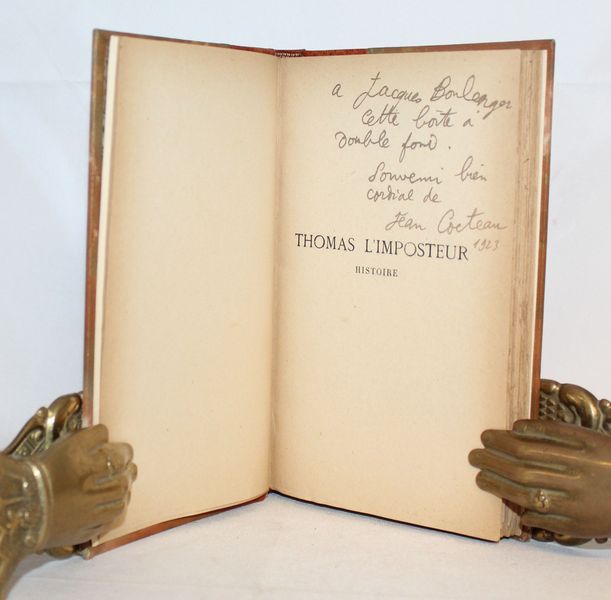 a Jacques Boulenger
cette boîte à
double fond.
Souvenir bien
cordial de
Jean Cocteau
1923
THOMAS L'IMPOSTEUR
HISTOIRE